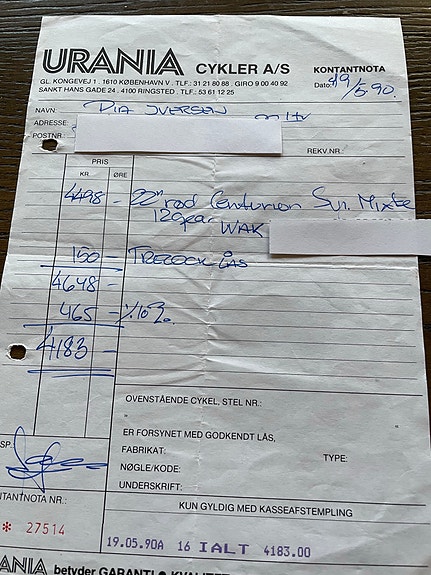 URANIA CYKLER A/S
KONTANTNOTA
GL. KONGEVEJ 1 . 1610 KØBENHAVN V . TLF.: 31 21 80 88 . GIRO 9 00 40 92
SANKT HANS GADE 24 . 4100 RINGSTED . TLF.: 53 61 12 25
Dato: 19/5.90.
NAVN: PIA IVERSEN
ADRESSE:
POSTNR.
REKV.NR.:
PRIS
KR. ØRE
4498 - 22" rød Centurion Sun. Mixte
12 gear WAK
150 - TRELOCK LÅS
4648 -
465 - ./. 10%.
4183 -
OVENSTÅENDE CYKEL, STEL NR.:
ER FORSYNET MED GODKENDT LÅS,
FABRIKAT: TYPE:
NØGLE/KODE:
UNDERSKRIFT:
KUN GYLDIG MED KASSEAFSTEMPLING
SP.:
NTANTNOTA NR.:
* 27514
19.05.90A 16 IALT 4183.00
ANIA betyder GARANTI ● KVALITE